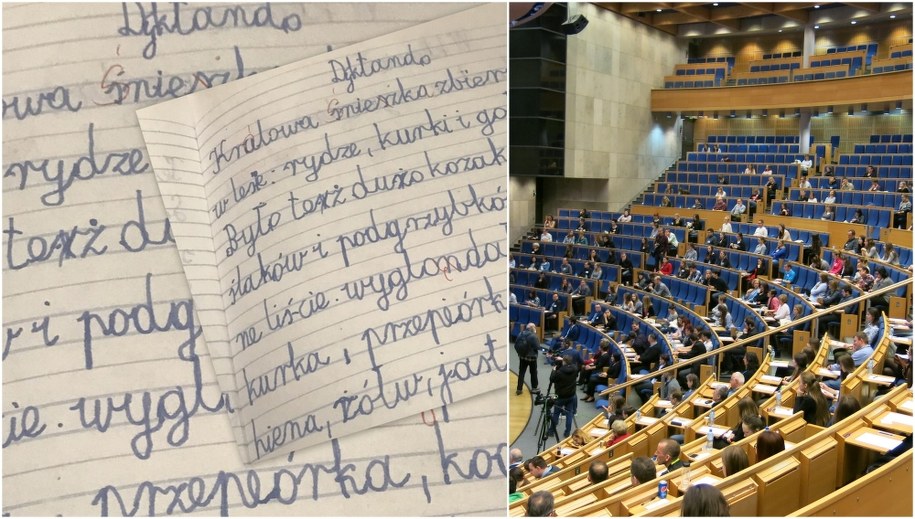 Dyktando
owa Śnieszk
rydze
też du
w i podg
cie. wygl
, przepiórka, ko
Dyktando
Królowa Śnieszka zbier
w lesie: rydze, kurki i go
Było też dużo kozak
ślaków i podgrzybkó
ne liście. wyglonda
kurka, przepiórk
hiena, żółw, jast